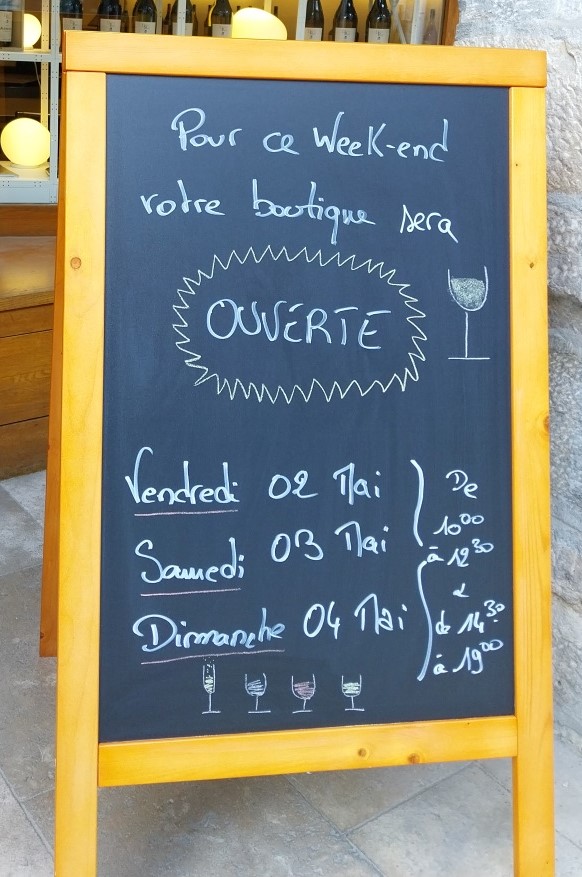 Pour ce Week-end
votre boutique sera
OUVERTE
Vendredi 02 Mai
Samedi 03 Mai
Dimanche 04 Mai
De
10⁰⁰
à 12³⁰
&
de 14³⁰
à 19⁰⁰